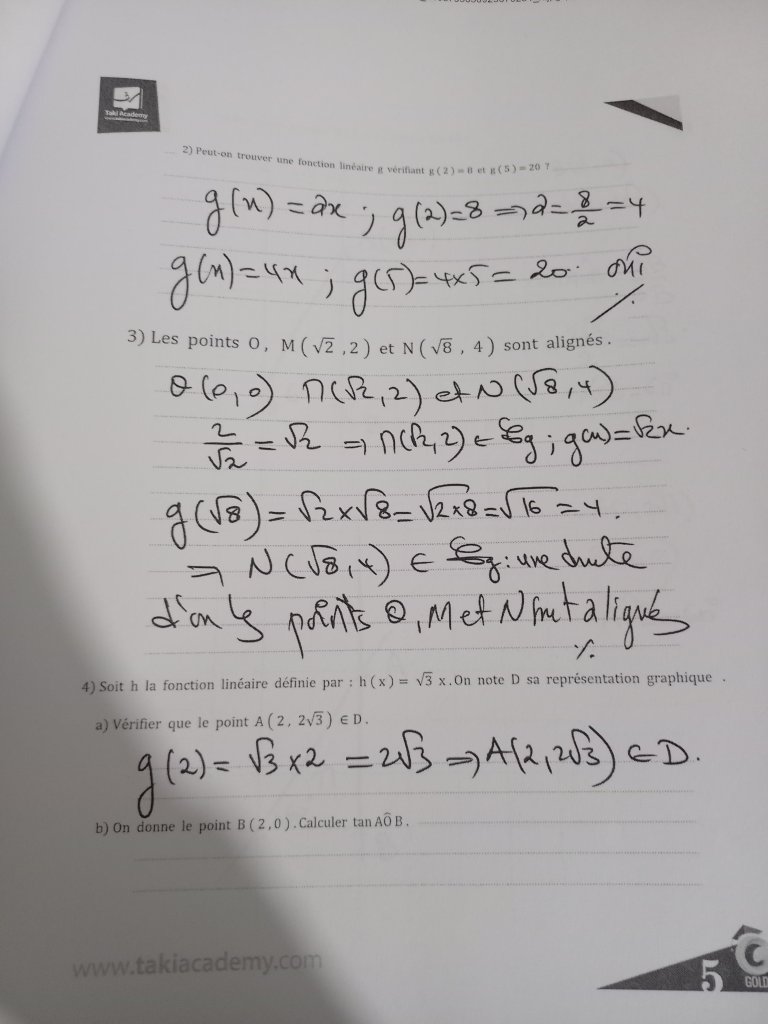 Taki Academy
www.takiacademy.com
2) Peut-on trouver une fonction linéaire g vérifiant g ( 2 ) = 8 et g ( 5 ) = 20 ?
g(x) = ax ; g(2)=8 ⇒ a = 8/2 = 4
g(x) = 4x ; g(5) = 4x5 = 20. oui
3) Les points O, M ( √2 , 2 ) et N ( √8 , 4 ) sont alignés .
O (0,0) M(√2, 2) et N (√8, 4)
2/√2 = √2 ⇒ M(√2, 2) ∈ ζg ; g(x) = √2x.
g(√8) = √2 x √8 = √2x8 = √16 = 4.
⇒ N(√8, 4) ∈ ζg : une droite
d'où les points O, M et N sont alignés
4) Soit h la fonction linéaire définie par : h ( x ) = √3 x . On note D sa représentation graphique .
a) Vérifier que le point A ( 2 , 2√3 ) ∈ D .
g(2) = √3 x 2 = 2√3 ⇒ A(2, 2√3) ∈ D.
b) On donne le point B ( 2 , 0 ) . Calculer tan AÔB .
www.takiacademy.com
5
GOLD